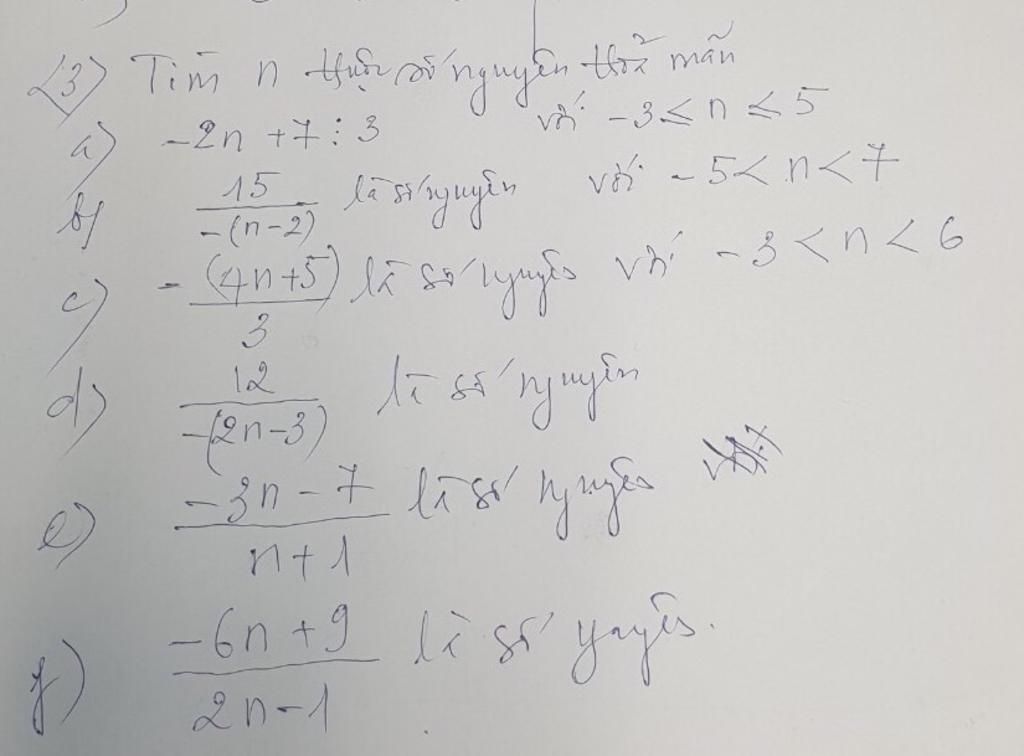 23) Tìm n thuộc số nguyên thoả mãn
a) -2n + 7 ⋮ 3 với -3 ≤ n ≤ 5
b) 15/-(n-2) là số nguyên với -5 < n < 7
c) -(4n+5)/3 là số nguyên với -3 < n < 6
d) 12/-(2n-3) là số nguyên
e) -3n-7/n+1 là số nguyên
f) -6n+9/2n-1 là số nguyên.